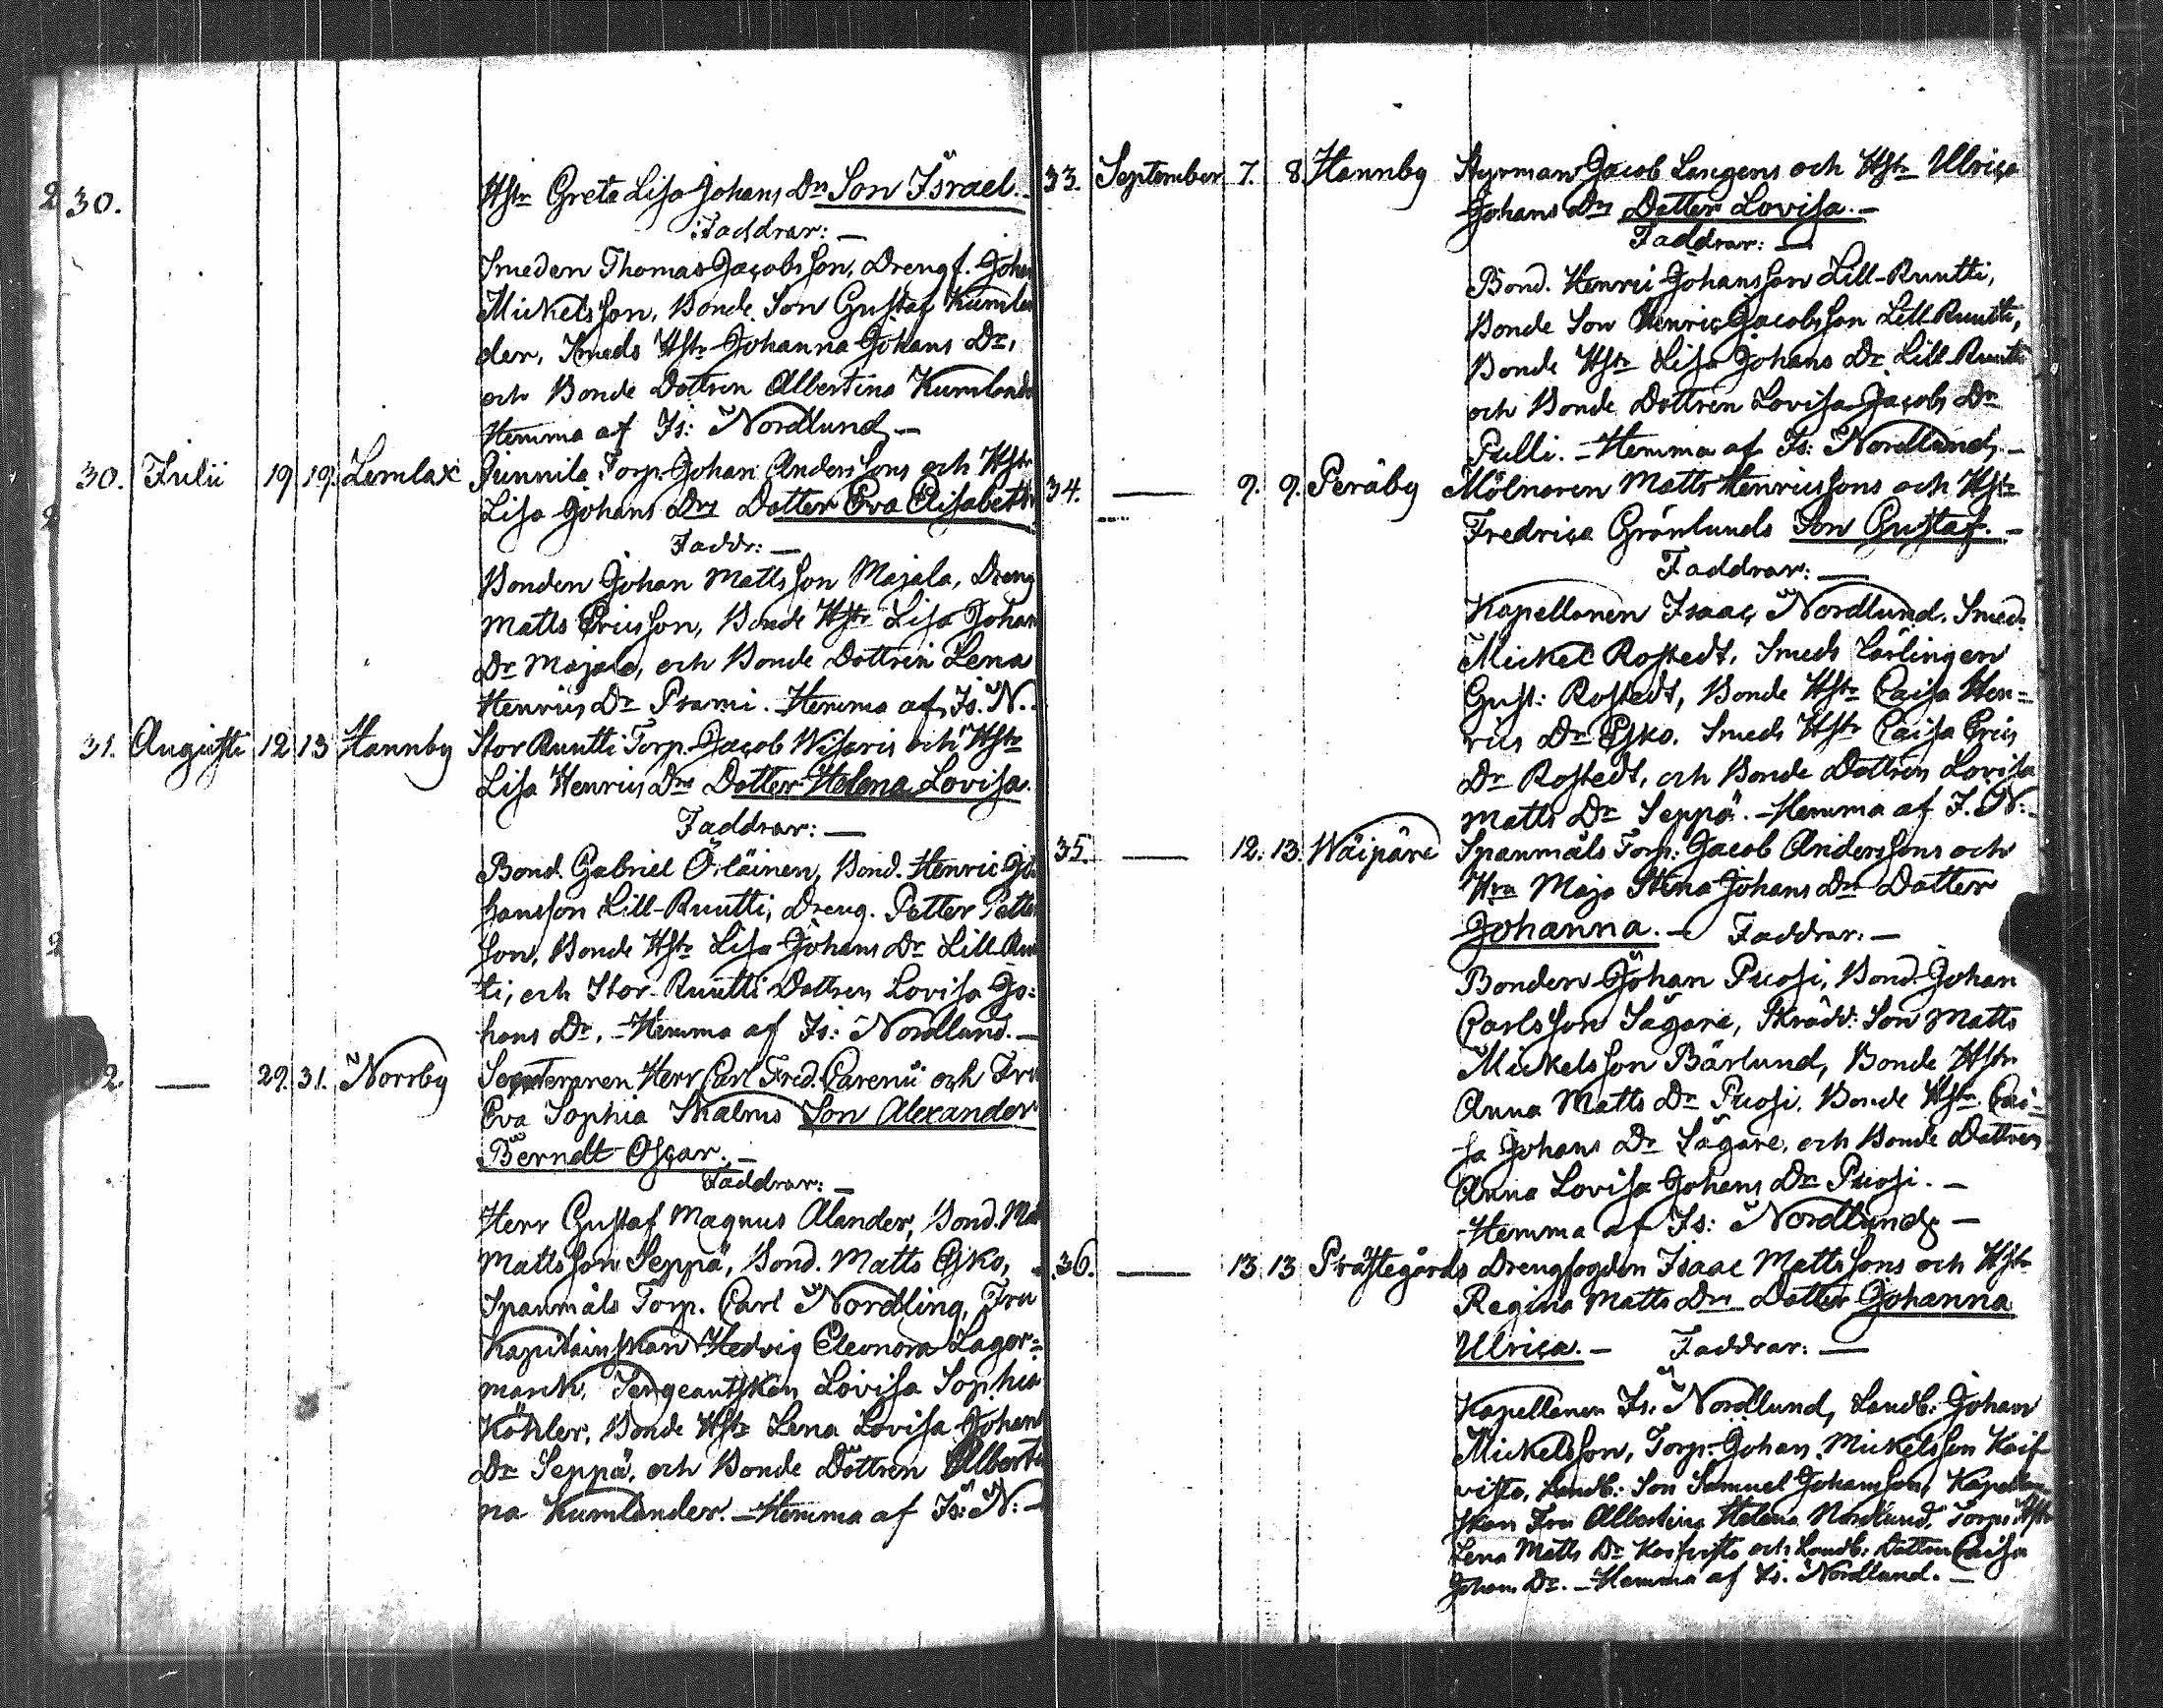 30. Hstr Greta Lisa Johans Drs Son Israel. -
Faddrar: -
Smeden Thomas Jacobsson, Drengf. Johan
Mickelsson, Bonde Son Gustaf Kumlen
der, Smeds Hstr Johanna Johans Dr,
och Bonde Dottren Albertina Kumlande
Hemma af Is: Nordlund -
30. Julii 19 19. Lemlax Junnila Torp. Johan Anderssons och Hstr
Lisa Johans Drs Dotter Eva Elisabeth
Faddr: -
Bonden Johan Mattsson Majala, Dreng
Matts Ericsson, Bonde Hstr Lisa Johan
Dr Majala, och Bonde Dottren Lena
Henrics Dr Prami. Hemma af Is. N.
31. Augusti 12 13 Hannby Stor Ruutti Torp. Jacob Wisaris och Hstr
Lisa Henrics Drs Dotter Helena Lovisa.
Faddrar: -
Bond. Gabriel Öiläinen, Bond. Henric Jo
hansson Lill-Ruutti, Dreng. Petter Petter
son, Bonde Hstr Lisa Johans Dr Lill Ruu
ti, och Stor-Ruutti Dottren Lovisa Jo=
hans Dr. - Hemma af Is: Nordlund. -
2 - 29. 31. Norrby Herr Carl Fred. Careni och Fru
Eva Sophia Skalms Son Alexander
Berndt Oscar. -
Faddrar: -
Herr Gustaf Magnus Alander, Bond. Mat
Mattsson Seppä, Bond. Matts Esko,
Spanmåls Torp. Carl Nordling, Fru
Kapitainskan Hedvig Eleonora Lager=
marck, Sergeantskan Lovisa Sophia
Köhler, Bonde Hstr Lena Lovisa Johan
Dr Seppä, och Bonde Dottren Alberti
na Kumlander. - Hemma af Is: N: -
33. September 7. 8. Hannby Styrman Jacob Langens och Hstr Ulrica
Johans Drs Dotter Lovisa. -
Faddrar: -
Bond. Henric Johansson Lill-Ruutti,
Bonde Son Henric Jacobsson Lill Ruutti,
Bonde Hstr Lisa Johans Dr Lill Ruutti
och Bonde Dottren Lovisa Jacobs Dr
Pulli. - Hemma af Is: Nordlund. -
34. - 9. 9. Peräby Mölnaren Matts Henricssons och Hstr
Fredrica Grönlunds Son Gustaf. -
Faddrar: -
Kapellanen Isaac Nordlund. Smed.
Mickel Rostedt, Smeds Lärlingen
Gust: Rostedt, Bonde Hstr Caisa Hen=
rics Dr Esko. Smeds Hstr Caisa Erics
Dr Rostedt, och Bonde Dottren Lovisa
Matts Dr Seppä. - Hemma af I. N:
35. - 12. 13. Wäipäre Spanmåls Torp. Jacob Anderssons och
Hra Maja Stina Johans Drs Dotter
Johanna. - Faddrar: -
Bonden Johan Pucosi, Bond. Johan
Carlsson Sägare, Skräd: Son Matts
Mickelsson Bärlund, Bonde Hstr
Anna Matts Dr Pucosi. Bonde Hstr Cai=
sa Johans Dr Sägare, och Bonde Dottren
Anna Lovisa Johans Dr Pucosi. -
Hemma af Is: Nordlund -
36. - 13 13 Prästegårds Drengfogden Isaac Mattssons och Hstr
Regina Matts Drs Dotter Johanna
Ulrica. - Faddrar: -
Kapellanen Is. Nordlund, Landb: Johan
Mickelsson, Torp. Johan Mickelsson Koif
visto, Landb: Son Samuel Johansson, Kapellan
skan Fru Albertina Helena Nordlund, Torps Hstr
Lena Matts Dr Koifvisto och Landb: Dottren Caisa
Johans Dr. - Hemma af Is. Nordlund. -